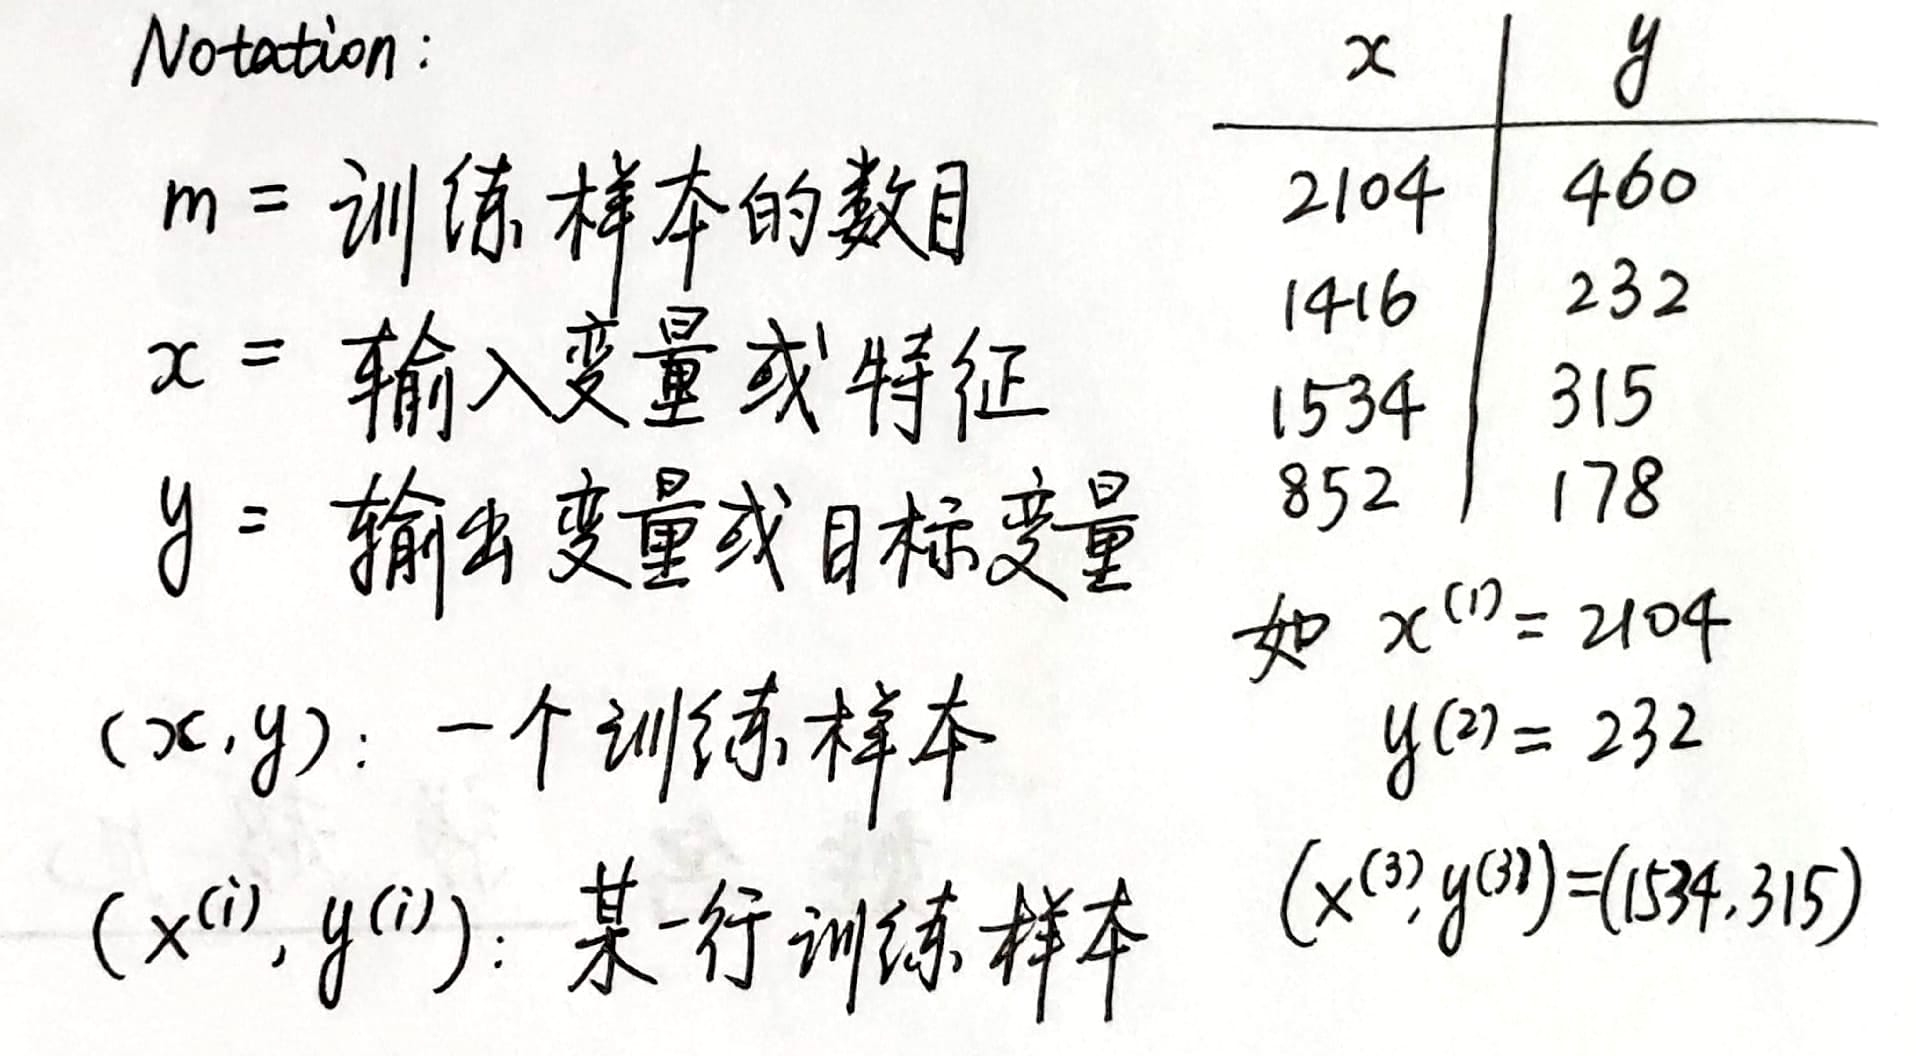 Notation:
m = 训练样本的数目
x = 输入变量或特征
y = 输出变量或目标变量
(x, y): 一个训练样本
(x^(i), y^(i)): 某一行训练样本
x y
2104 460
1416 232
1534 315
852 178
如 x^(1) = 2104
y^(2) = 232
(x^(3), y^(3)) = (1534, 315)